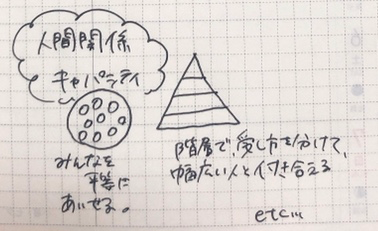 人間関係
キャパシティ
みんなを
平等に
あいせる。
階層で、愛し方を分けて、
幅広い人と付き合える
etc...